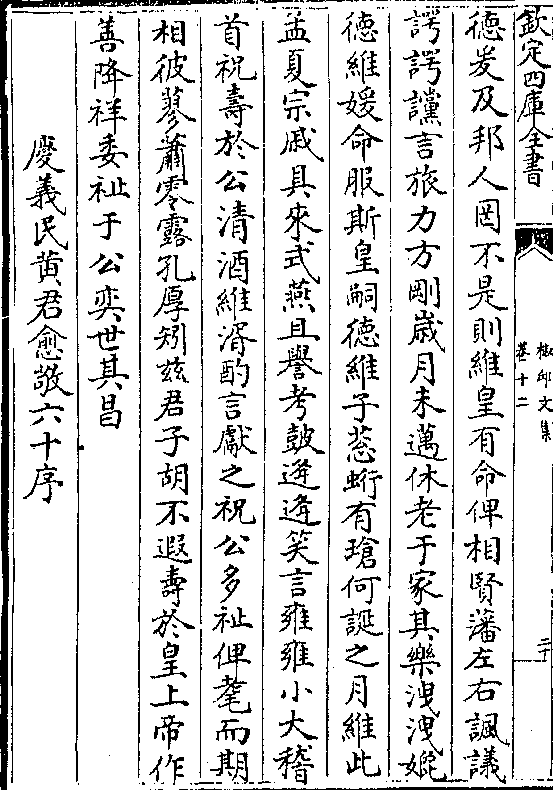 欽定四庫全書
椒邱文集
卷十二
二十
德爰及邦人罔不是則維皇有命俾相賢藩左右諷議
諤諤讜言旅力方剛嵗月未邁休老于家其樂洩洩婉
德維媛命服斯皇嗣德維子蔥珩有瑲何誕之月維此
孟夏宗戚具來式燕且譽考鼓逄逄笑言雍雍小大稽
首祝壽於公清酒維湑酌言獻之祝公多祉俾耄而期
相彼蓼蕭零露孔厚矧兹君子胡不遐壽於皇上帝作
善降祥委祉于公奕世其昌
慶義民黄君愈敬六十序